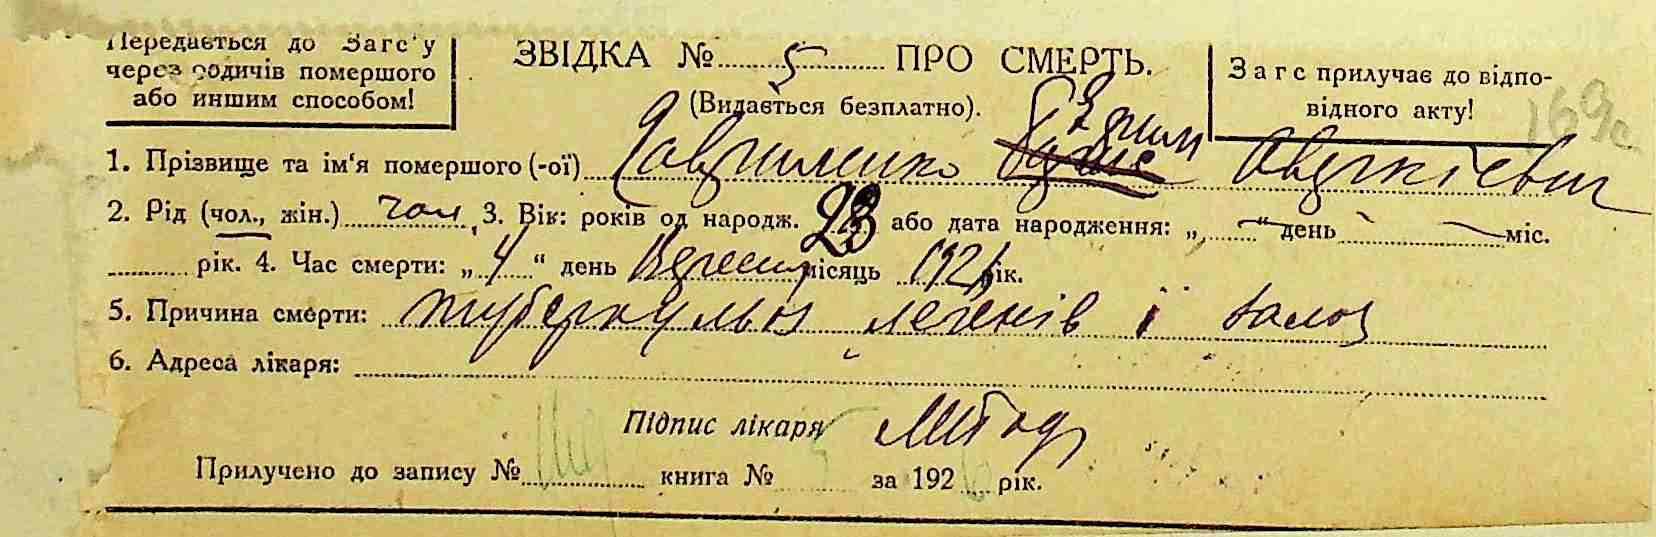 Передається до Загс'у
через родичів помершого
або иншим способом!
ЗВІДКА № 5 ПРО СМЕРТЬ.
(Видається безплатно).
Загс прилучає до відпо-
відного акту!
1. Прізвище та ім'я помершого (-ої) Гавриленко
2. Рід (чол., жін.) чол, 3. Вік: років од народж. 23 або дата народження: „ “ день міс.
рік. 4. Час смерти: „ 4 “ день Вересня місяць рік.
5. Причина смерти: туберкульоз легенів і залоз
6. Адреса лікаря:
Підпис лікаря
Прилучено до запису № книга № за 192 рік.